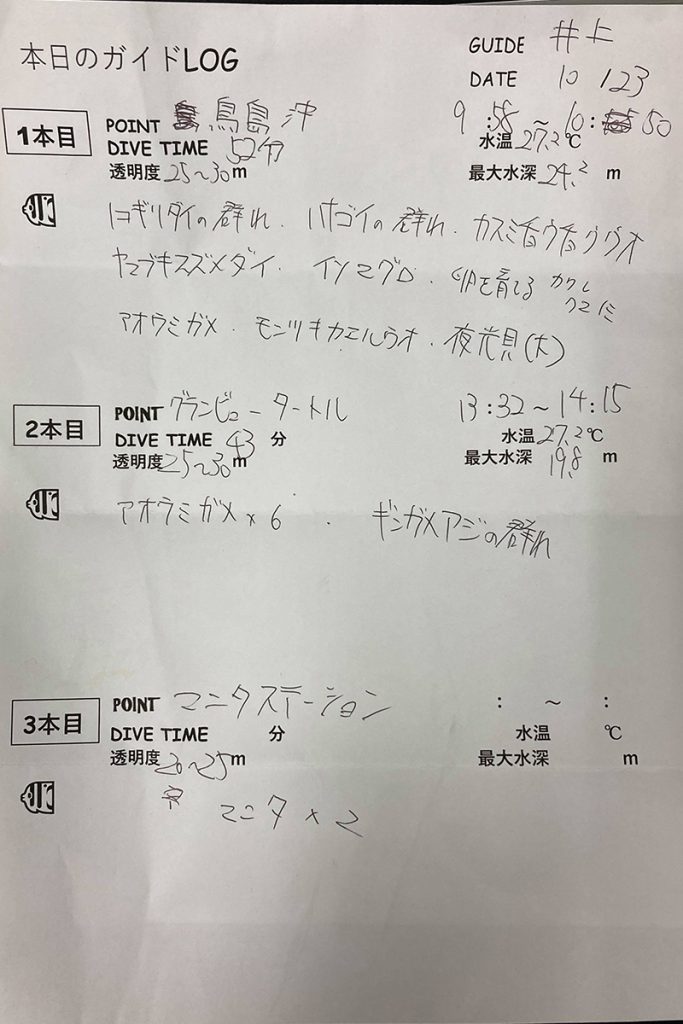 本日のガイドLOG
GUIDE 井上
DATE 10 /23
1本目
POINT 鳥島沖
9:58~10:50
DIVE TIME 52分
水温27.2℃
透明度25~30m
最大水深24.2m
ノコギリダイの群れ．ハナゴイの群れ．カスミチョウチョウウオ
ヤマブキスズメダイ．イソマグロ．卵を育てるカクレクマノミ
アオウミガメ．モンツキカエルウオ．夜光貝(大)
2本目
POINT グランビュータートル
13:32~14:15
DIVE TIME 43分
水温27.2℃
透明度25~30m
最大水深19.8m
アオウミガメ×6．ギンガメアジの群れ
3本目
POINT マンタステーション
: ~ :
DIVE TIME 分
水温 ℃
透明度20~25m
最大水深 m
マンタ×2